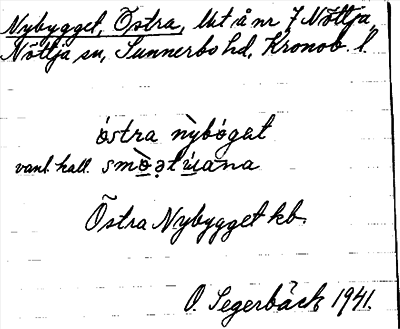 Nybygget, Östra, Ut å nr 7 Nöttja,
Nöttja sn, Sunnerbo hd, Kronob. l.
östra nỳbóget
vanl. kall.
Östra Nybygget kb.
O. Segerbäck 1941.